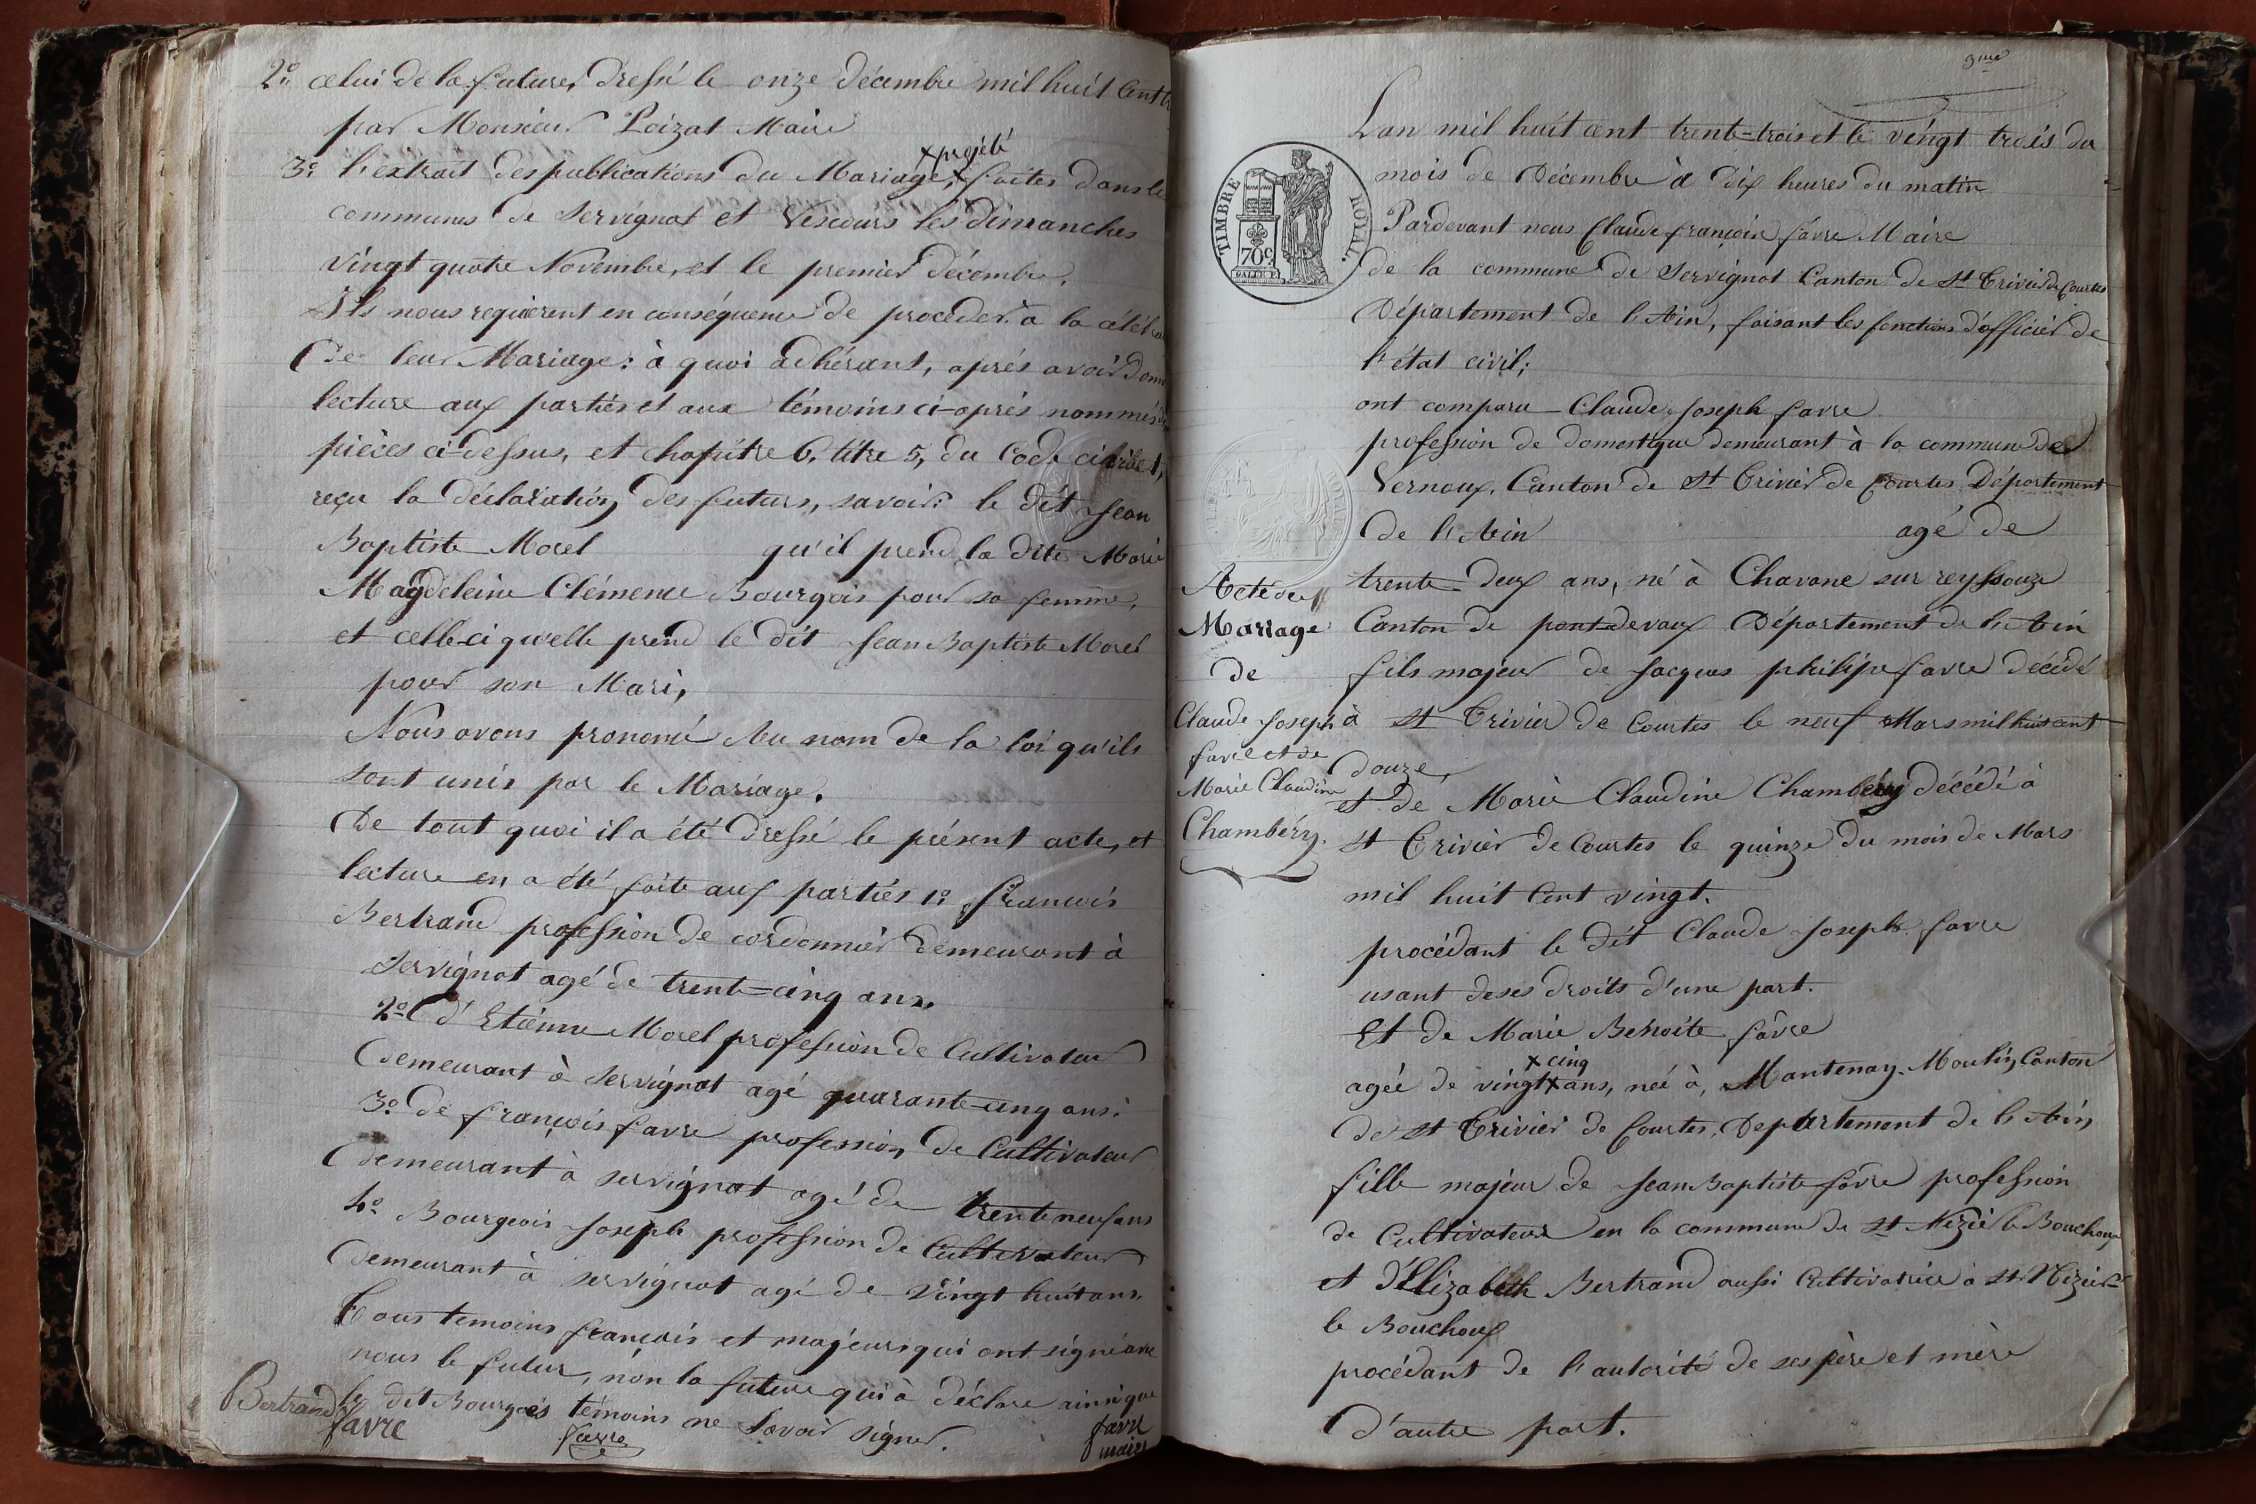 2º celui de la future, dressé le onze décembre mil huit cent
par Monsieur Loizat Maire
x projété
3º L'extrait des publications du Mariage, x faites dans les
communes de Servignat et Vescours les dimanches
vingt quatre Novembre, et le premier décembre.
Ils nous requierent en conséquence de procéder à la célé
de leur Mariage: à quoi adhérant, aprés avoir donn
lecture aux parties et aux témoins ci-aprés nommés
pièces ci-dessus, et chapitre 6, titre 5, du Code civil
reçu la déclaration des futurs, savoir: le dit Jean
Baptiste Morel qu'il prend la dite Marie
Magdeleine Clémence Bourgois pour sa femme,
et celle-ci qu'elle prend le dit Jean Baptiste Morel
pour son Mari,
Nous avons prononcé Au nom de la loi qu'ils
sont unis par le Mariage.
De tout quoi il a été dressé le présent acte, et
lecture en a été faite aux parties 1º françois
Bertrand profession de cordonnier demeurant à
Servignat agé de trente-cinq ans.
2º d'Etienne Morel profession de Cultivateur
demeurant à Servignat agé quarante-cinq ans:
3º de françois favre profession de Cultivateur
demeurant à servignat agé de trente neuf ans
4º Bourgeois Joseph profession de Cultivateur
demeurant à servignat agé de vingt huit ans.
Tous temoins françois et majeurs qui ont signé avec
nous le futur, non la future qui à déclare ainsi que
le dit Bourgois témoins ne savoir signer.
Bertrand
favre
favre
favre
maire
3me
L'an mil huit cent trente-trois et le vingt trois du
mois de Décembre à dix heures du matin
Pardevant nous Claude françois favre Maire
de la commune de Servignat Canton de St Trivier de Courtes
Département de l'Ain, faisant les fonctions d'officier de
l'état civil;
TIMBRE ROYAL.
70c.
ont comparu Claude Joseph favre
profession de domestique demeurant à la commune de
Vernoux, Canton de St Trivier de Courtes Département
de l'Ain agé de
trente deux ans, né à Chavane sur reyssouze
Canton de pont-devaux Département de l'Ain
fils majeur de Jacques philipe favre décédé
à St Trivier de Courtes le neuf Mars mil huit cent
douze,
et de Marie Claudine Chambéry décédé à
St Trivier de Courtes le quinze du mois de Mars
mil huit Cent vingt.
procédant le dit Claude Joseph favre
usant de ses droits d'une part.
Et de Marie Benoite fâvre
x cinq
agée de vingt x ans, née à, Mantenay-Moulin Canton
de St Trivier de Courtes, Departement de l'Ain
fille majeur de Jean Baptiste fâvre profession
de Cultivateur en la commune de St Nizier le Bouchoux
et d'Elizabeth Bertrand aussi Cultivatrice à St Nizier
le Bouchoux
procédant de l'autorité de ses père et mère
d'autre part.
Acte de
Mariage
de
Claude Joseph
favre et de
Marie Claudine
Chambéry.